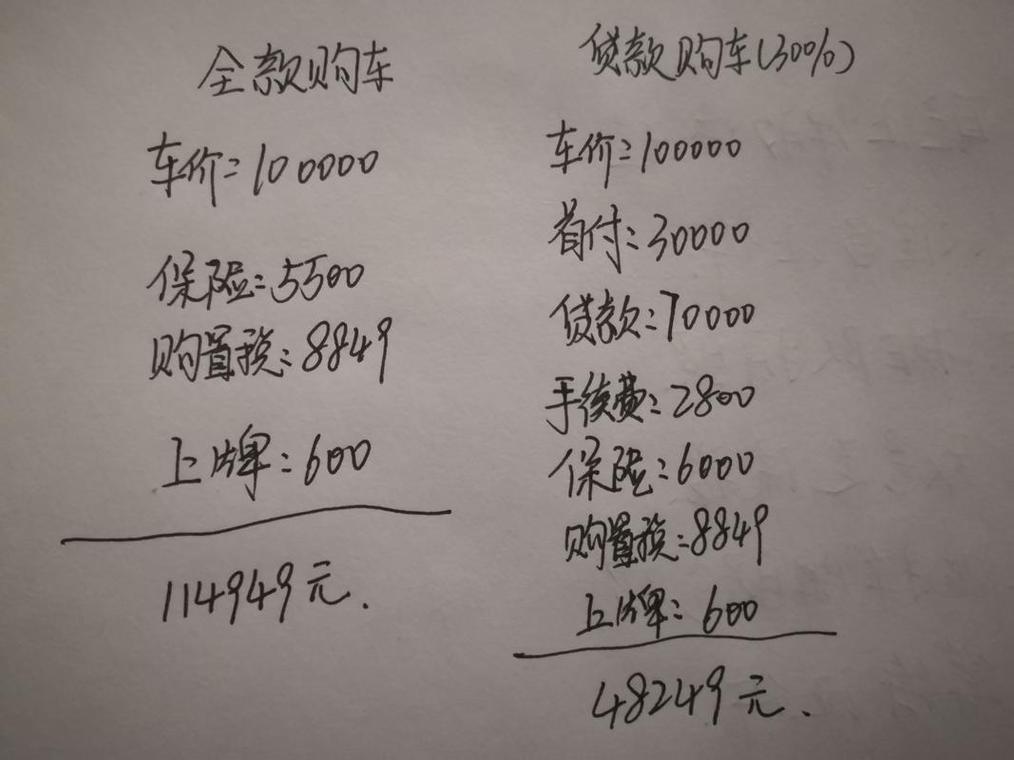 全款购车
车价:100000
保险:5500
购置税:8849
上牌:600
114949元.
贷款购车(30%)
车价:100000
首付:30000
贷款:70000
手续费:2800
保险:6000
购置税:8849
上牌:600
48249元.